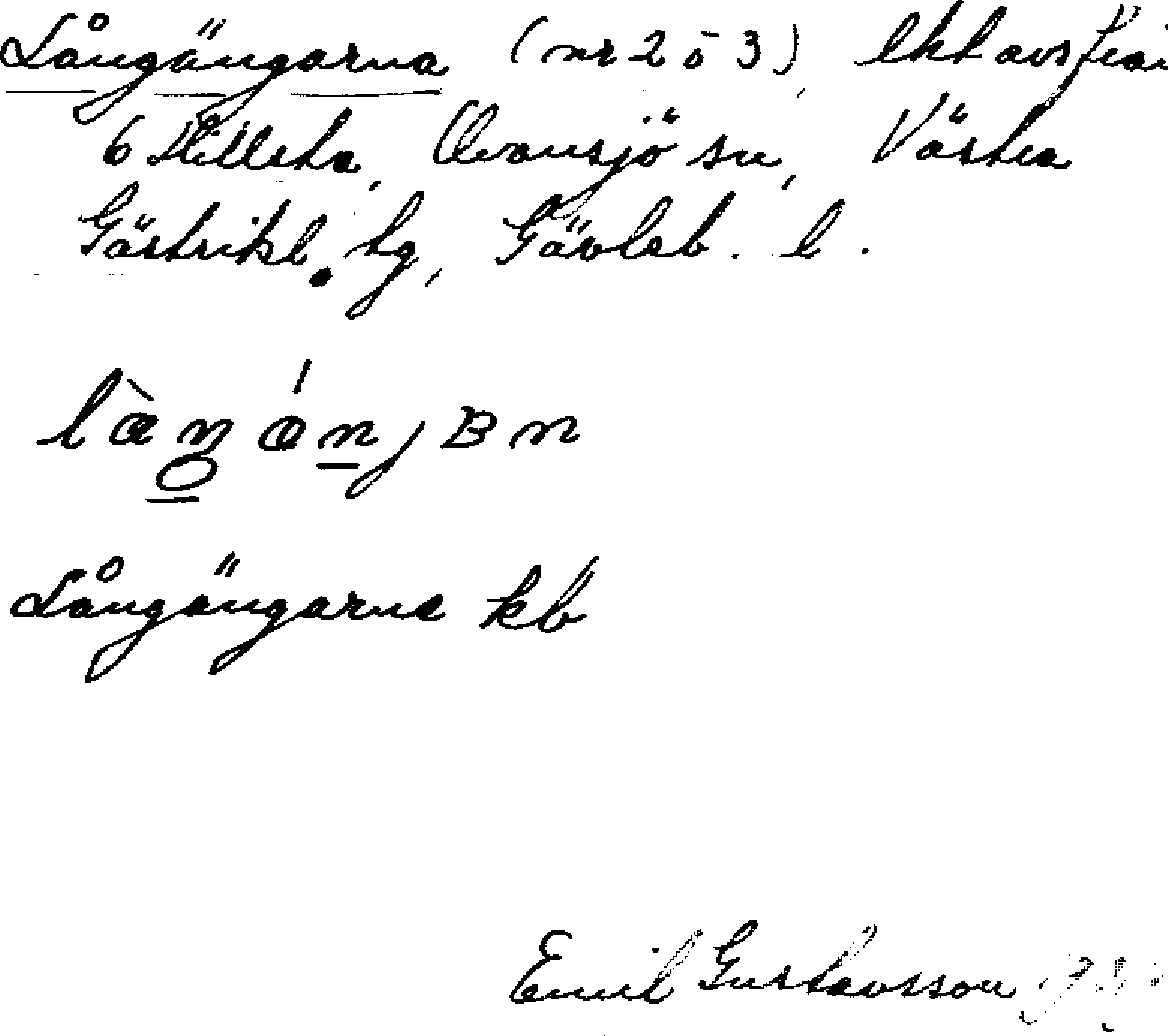 Långängarna (nr 2 o 3), lht avs från
6 Hillsta, Ovansjö sn, Västra
Gästrikl. tg, Gävleb. l.
Långängarne kb
Emil Gustavsson